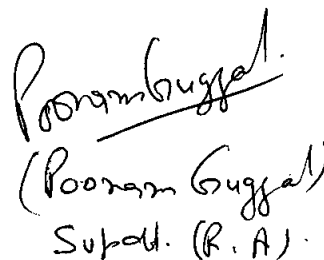 Poonam Guggal.
(Poonam Guggal)
Supdt. (R.A).